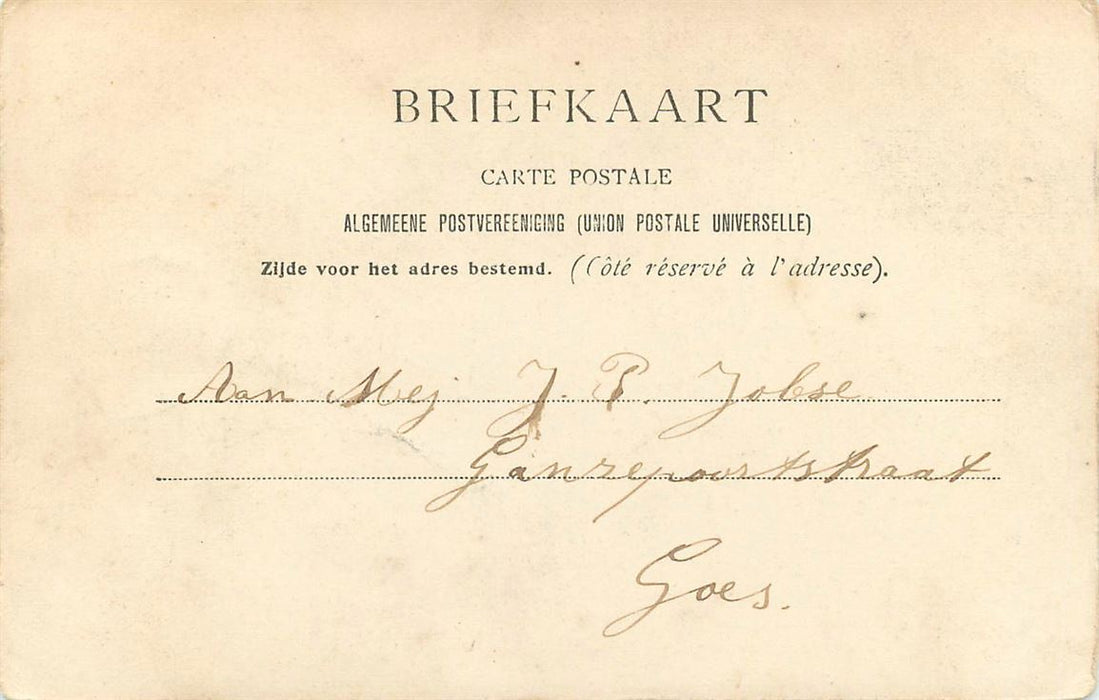 BRIEFKAART
CARTE POSTALE
ALGEMEENE POSTVEREENIGING (UNION POSTALE UNIVERSELLE)
Zijde voor het adres bestemd. (Côté réservé à l'adresse).
Aan Mej J. P. Jobse
Ganzepoortstraat
Goes.